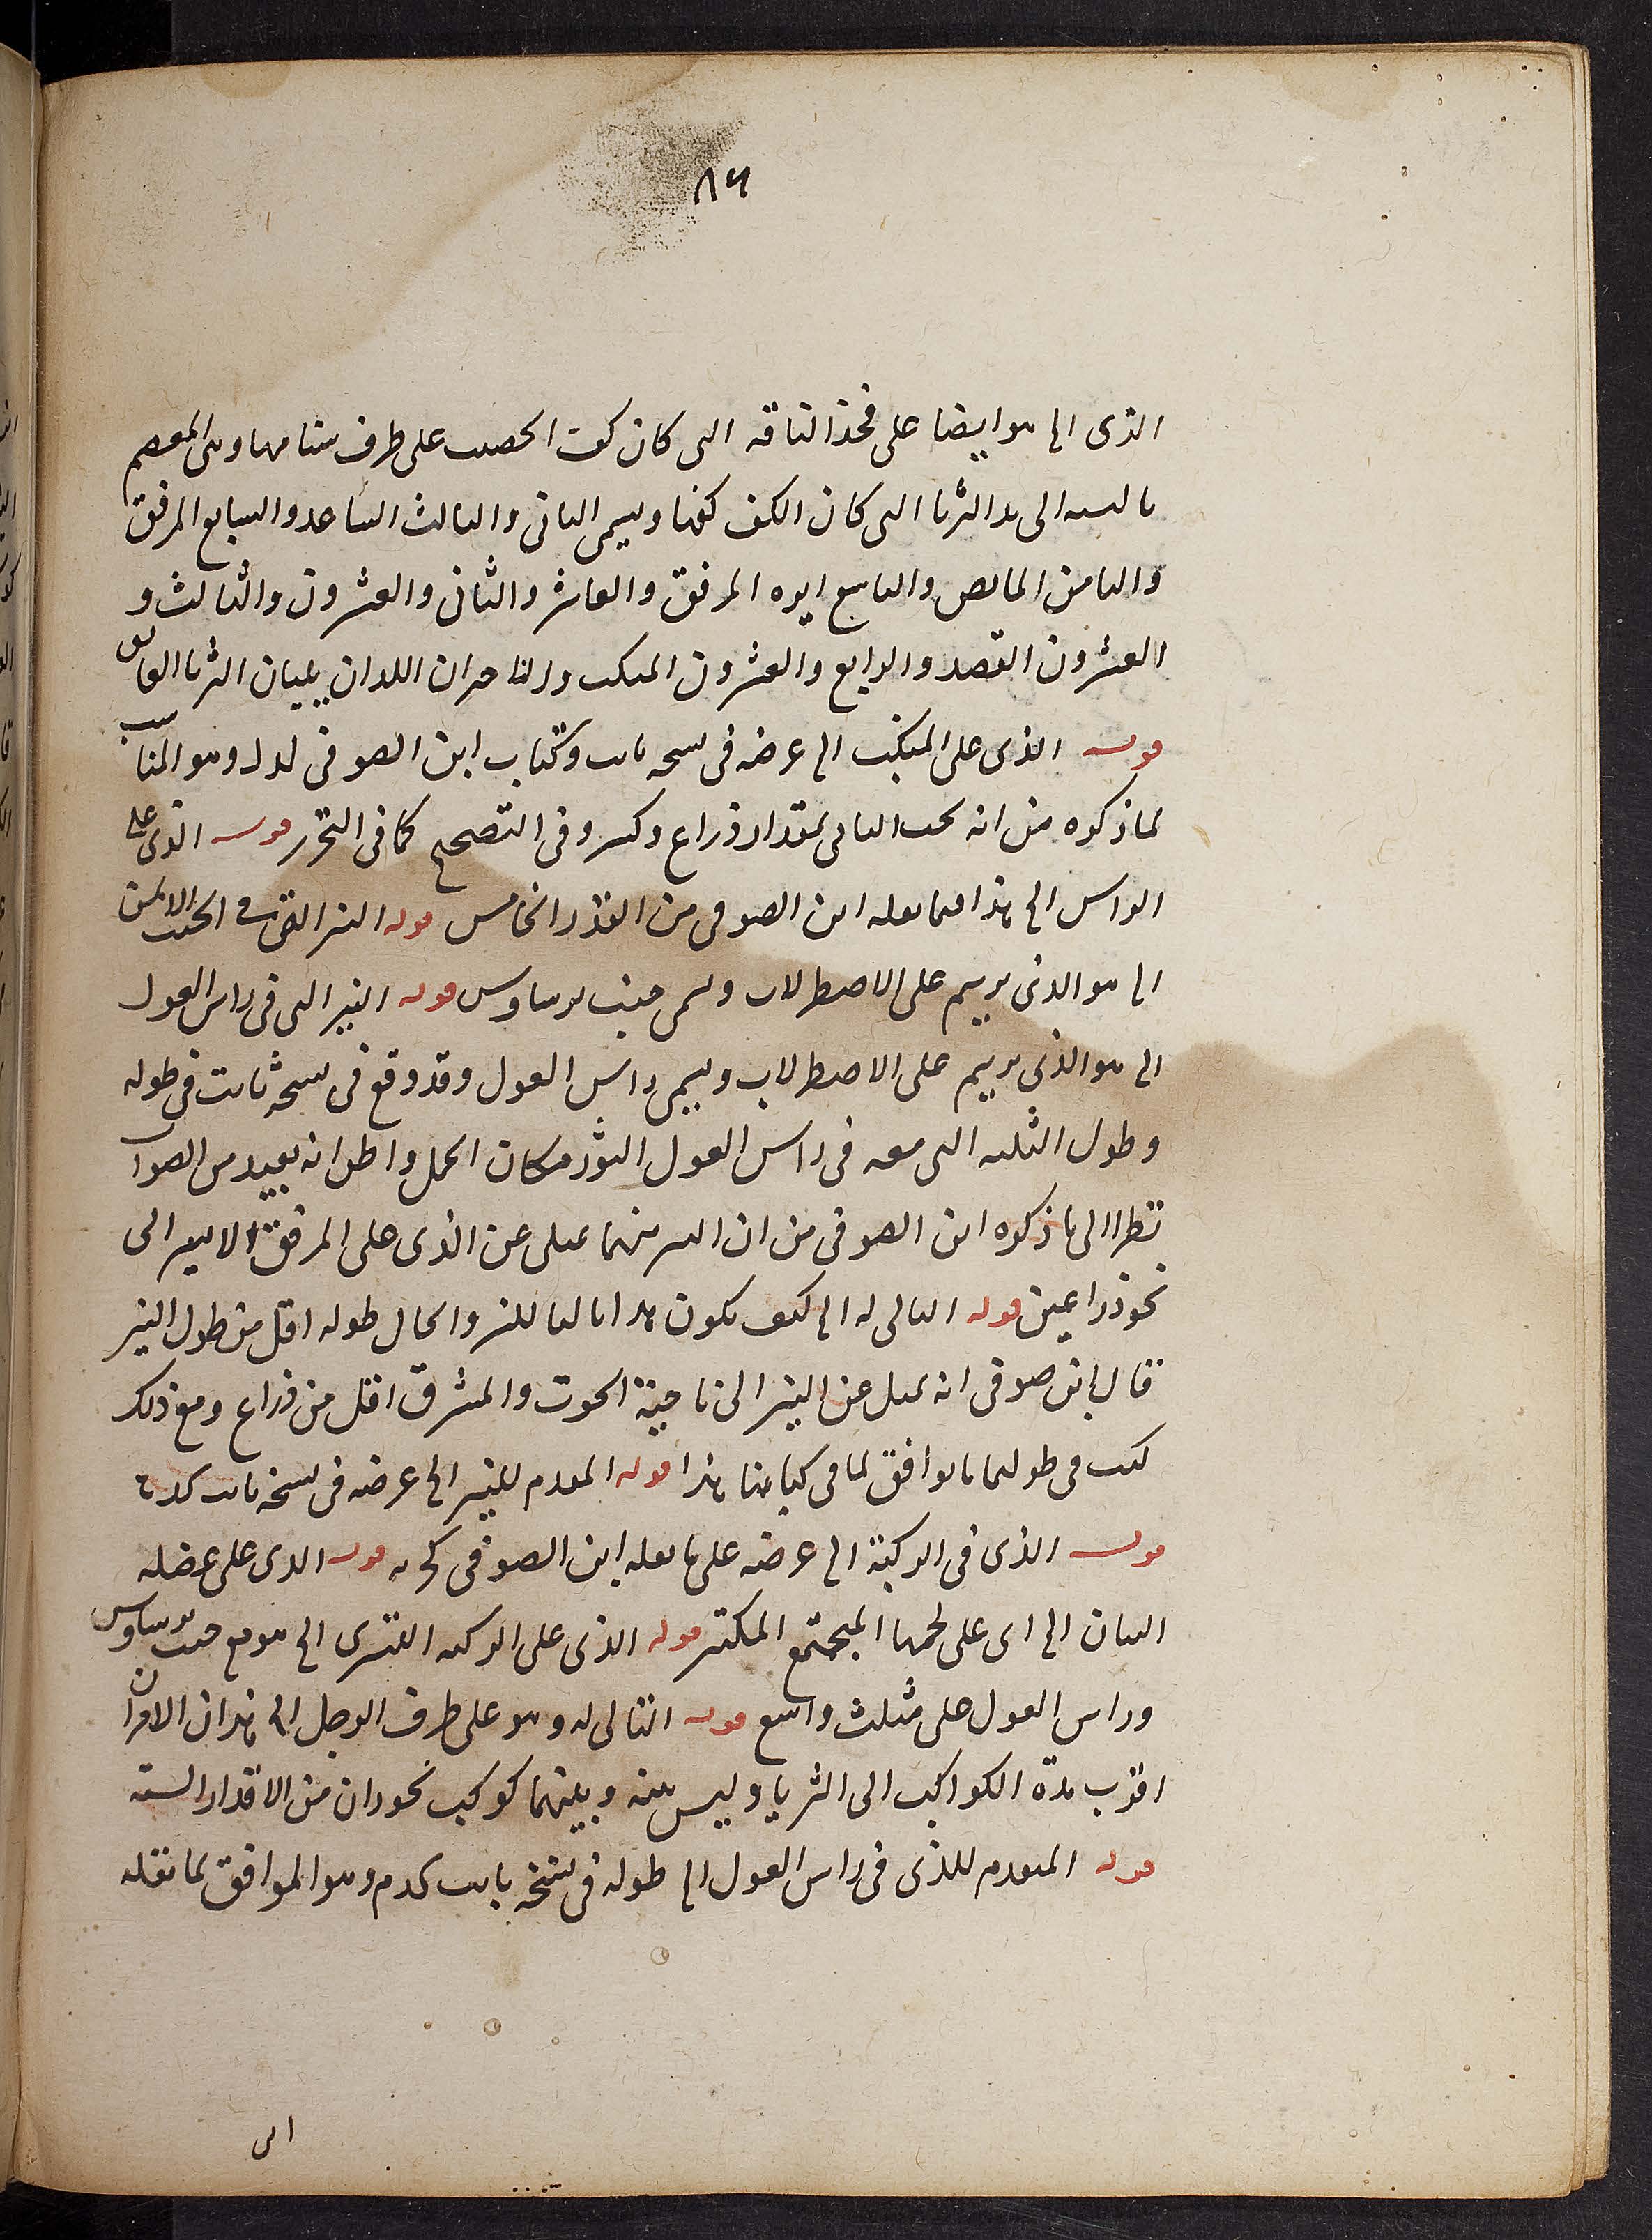 ٨٦
الذى الخ هو ايضا على فخذ الناقه التى كان كف الخصيب على طرف سنامها وهى المعصم
بالنسبه الى يد الثريا التى كان الكف كفها ويسمى الثانى والثالث الساعد والسابع المرفق
والثامن المابض والتاسع ابره المرفق والعاشر والثانى والعشرون والثالث و
العشرون العضد والرابع والعشرون المنكب والاخيران اللذان يليان الثريا العاتق
قوله الذى على المنكب الخ عرضه فى نسخه ثابت وكتاب ابن الصوفى وهو المناسب
لما ذكره من انه تحت الثانى بمقدار ذراع وكسر وفى التصحيح كما فى التحرير قوله الذى على
الراس الخ هذا فيما نقله ابن الصوفى من القدر الخامس قوله النير الذى فى الجنب الايمن
الخ هو الذى يرسم على الاصطرلاب ويسمى جنب برساوس قوله النير الذى فى راس الغول
الخ هو الذى يرسم على الاصطرلاب ويسمى راس الغول وقد وقع فى نسخة ثابت فى طوله
وطول الثلثه التى معه فى راس الغول الثور مكان الحمل واظن انه بعيد من الصواب
نظرا الى ما ذكره ابن الصوفى من ان النير منهما يميل عن الذى على المرفق الايسر الى
نحو ذراعين قوله التالى له الخ كيف يكون هذا تاليا للنير والحال طوله اقل من طول النير
قال ابن صوفى انه يميل عن النير الى ناحية الحوت والمشرق اقل من ذراع ومع ذلك
كتب فى طولهما ما يوافق لما فى كتابنا هذا قوله المقدم للنير الخ عرضه فى نسخة ثابت
قوله الذى فى الركبة الخ عرضه على ما نقله ابن الصوفى قوله الذى على عضله
الساق الخ اى على لحمها المجتمع المكتنز قوله الذى على الركبه اليسرى الخ هو مع جنب برساوس
وراس الغول على مثلث واسع قوله التالى له وهو على طرف الرجل الخ هذان الاخيران
اقرب هذه الكواكب الى الثريا وليس بينه وبينهما كوكب نحو ران من الاقدار السته
قوله المتقدم للذى فى راس الغول الخ طوله فى نسخة ثابت كدم وهو الموافق لما نقله
ابن